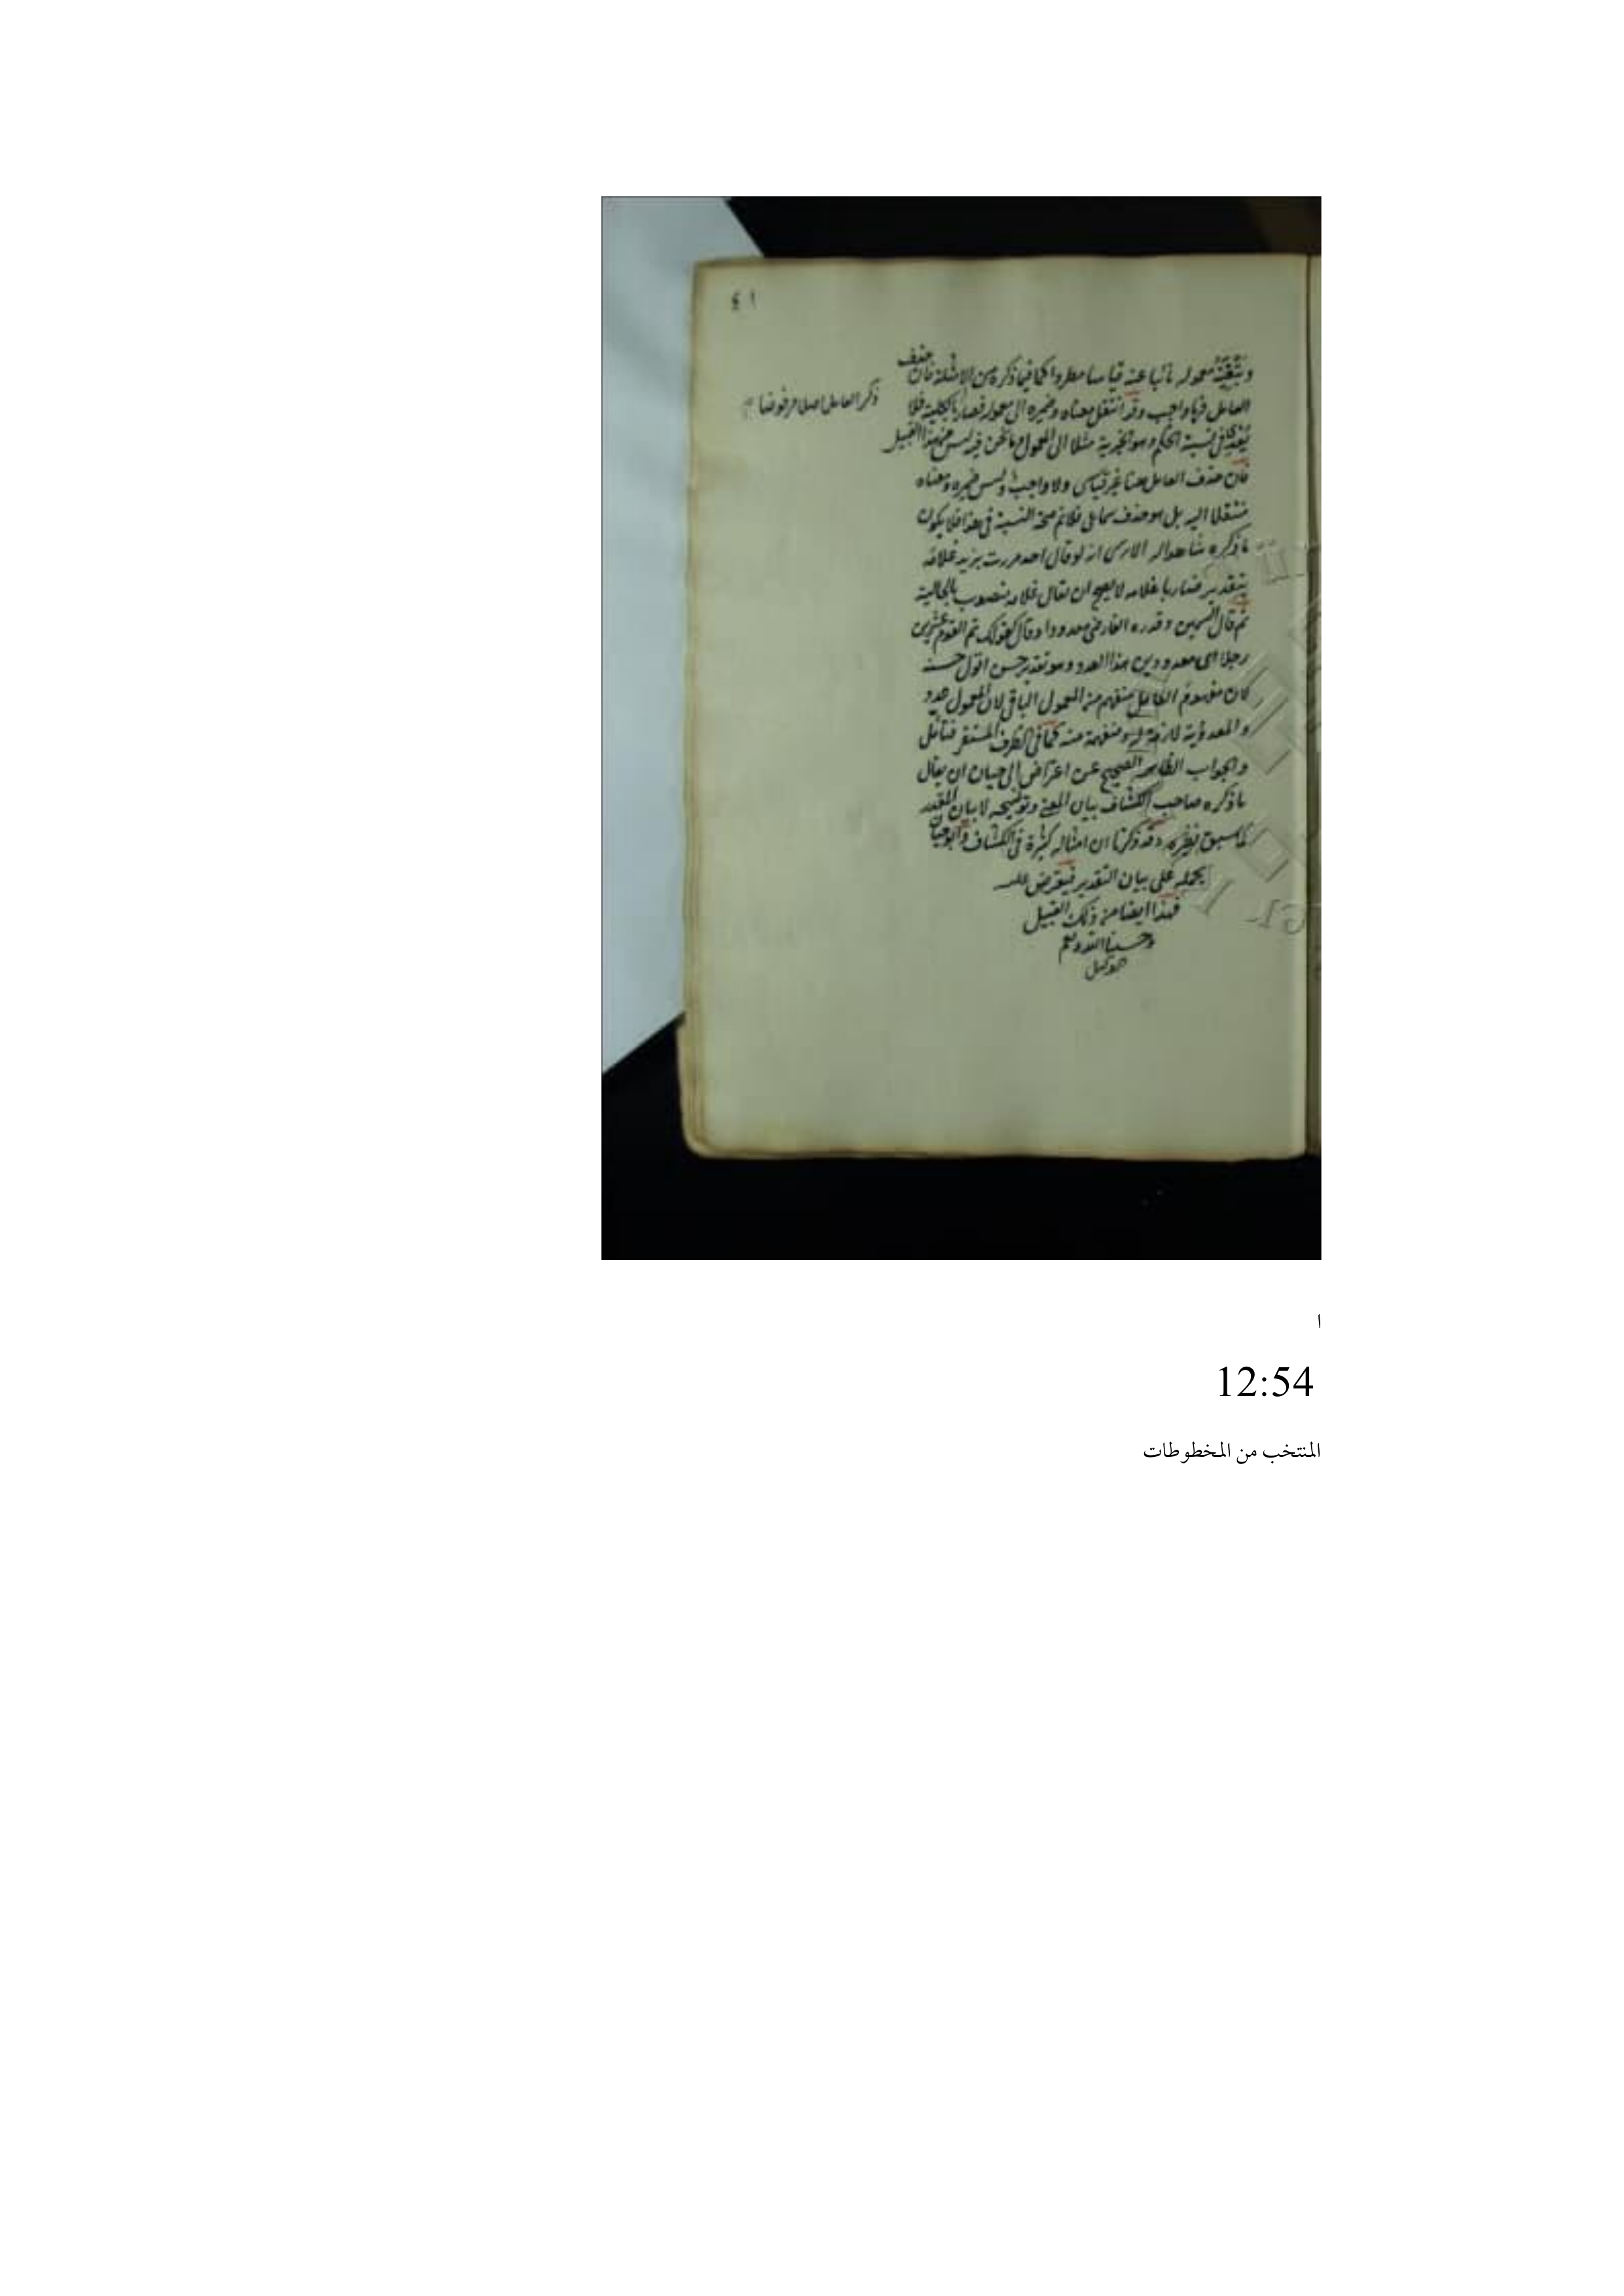 ٤١
وتبقية معموله نائبا عنه قياسا مطردا كما فيما ذكره من الامثلة فان حذف
العامل فيها واجب وقد انتقل معناه وضميره الى معموله فصار بالكلية فلا
ذكر العامل اصلا مرفوضا
في نسبة الحكم وهو الخبرية مثلا الى المعمول وما نحن فيه ليس من هذا القبيل
فان حذف العامل هنا غير قياسي ولا واجب وليس ضميره ومعناه
منتقلا اليه بل هو حذف سماعي فلا نم صحة النسبة في هذا فلا يكون
ما ذكره شاهدا له الا يرى انه لو قال احد مررت بزيد غلامه
بتقدير ضاربا غلامه لا يصح ان يقال غلامه منصوب بالحالية
ثم قال السمين وقدره الفارسي معدودا وقال كقولك تم القوم عشرين
رجلا اى معدودين هذا العدد وهو تقدير حسن اقول حسنه
لان مفهوم العامل منفهم من المعمول الباقي لان المعمول عدد
والمعدودية لازمة له ومنفهمة منه كما في الظرف المستقر فتأمل
والجواب الظاهر الصحيح عن اعتراض ابي حيان ان يقال
ما ذكره صاحب الكشاف بيان المعنى وتوضيحه لا بيان المقدر
كما سبق نظيره وقد ذكرنا ان امثاله كثيرة في الكشاف وابو حيان
يحمله على بيان التقدير فيعترض عليه
فهذا ايضا من ذلك القبيل
وحسبنا الله ونعم
الوكيل
ا
12:54
المنتخب من المخطوطات